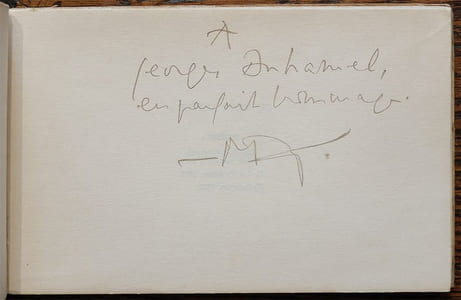 A
Georges Duhamel,
en parfait hommage.